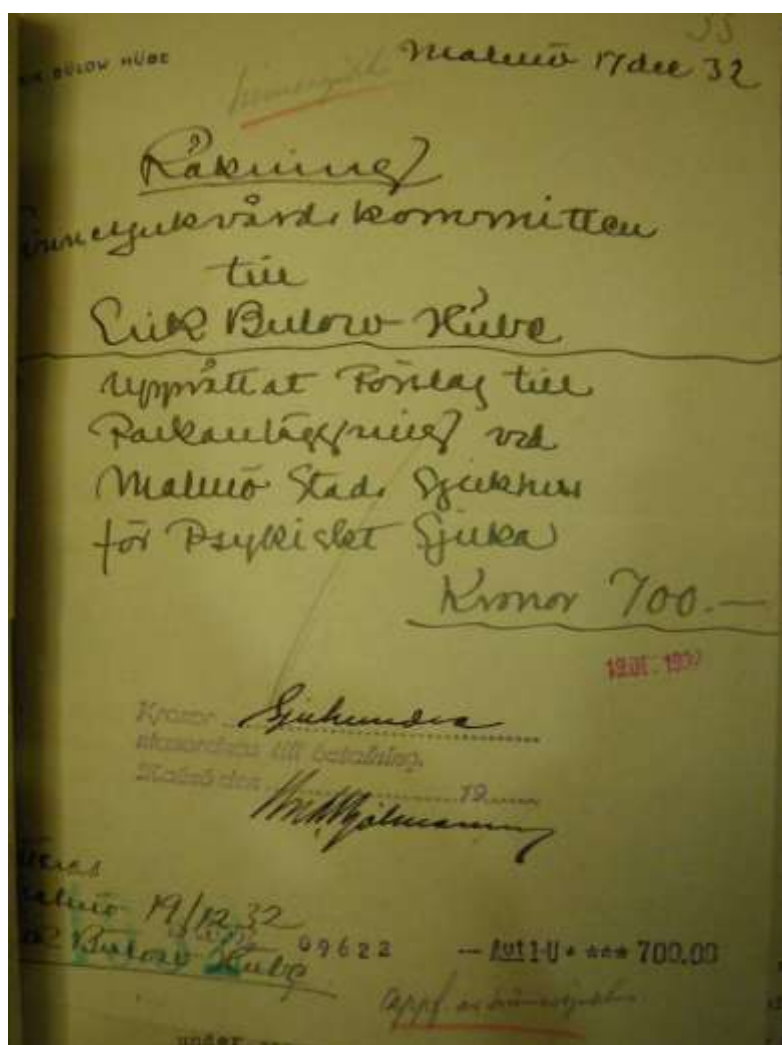 BÜLOW HÜBE
Malmö 17 dec 32
Räkning
sinnessjukvårdskommitten
till
Erik Bülow Hübe
Upprättat Förslag till
Parkanläggning vid
Malmö Stads Sjukhus
för Psykiskt Sjuka
Kronor 700.—
Kronor Sjuhundra
till betalning.
Malmö den 19
19/12 32
Bülow Hübe
09622 — Aut 1-U * *** 700.00
under